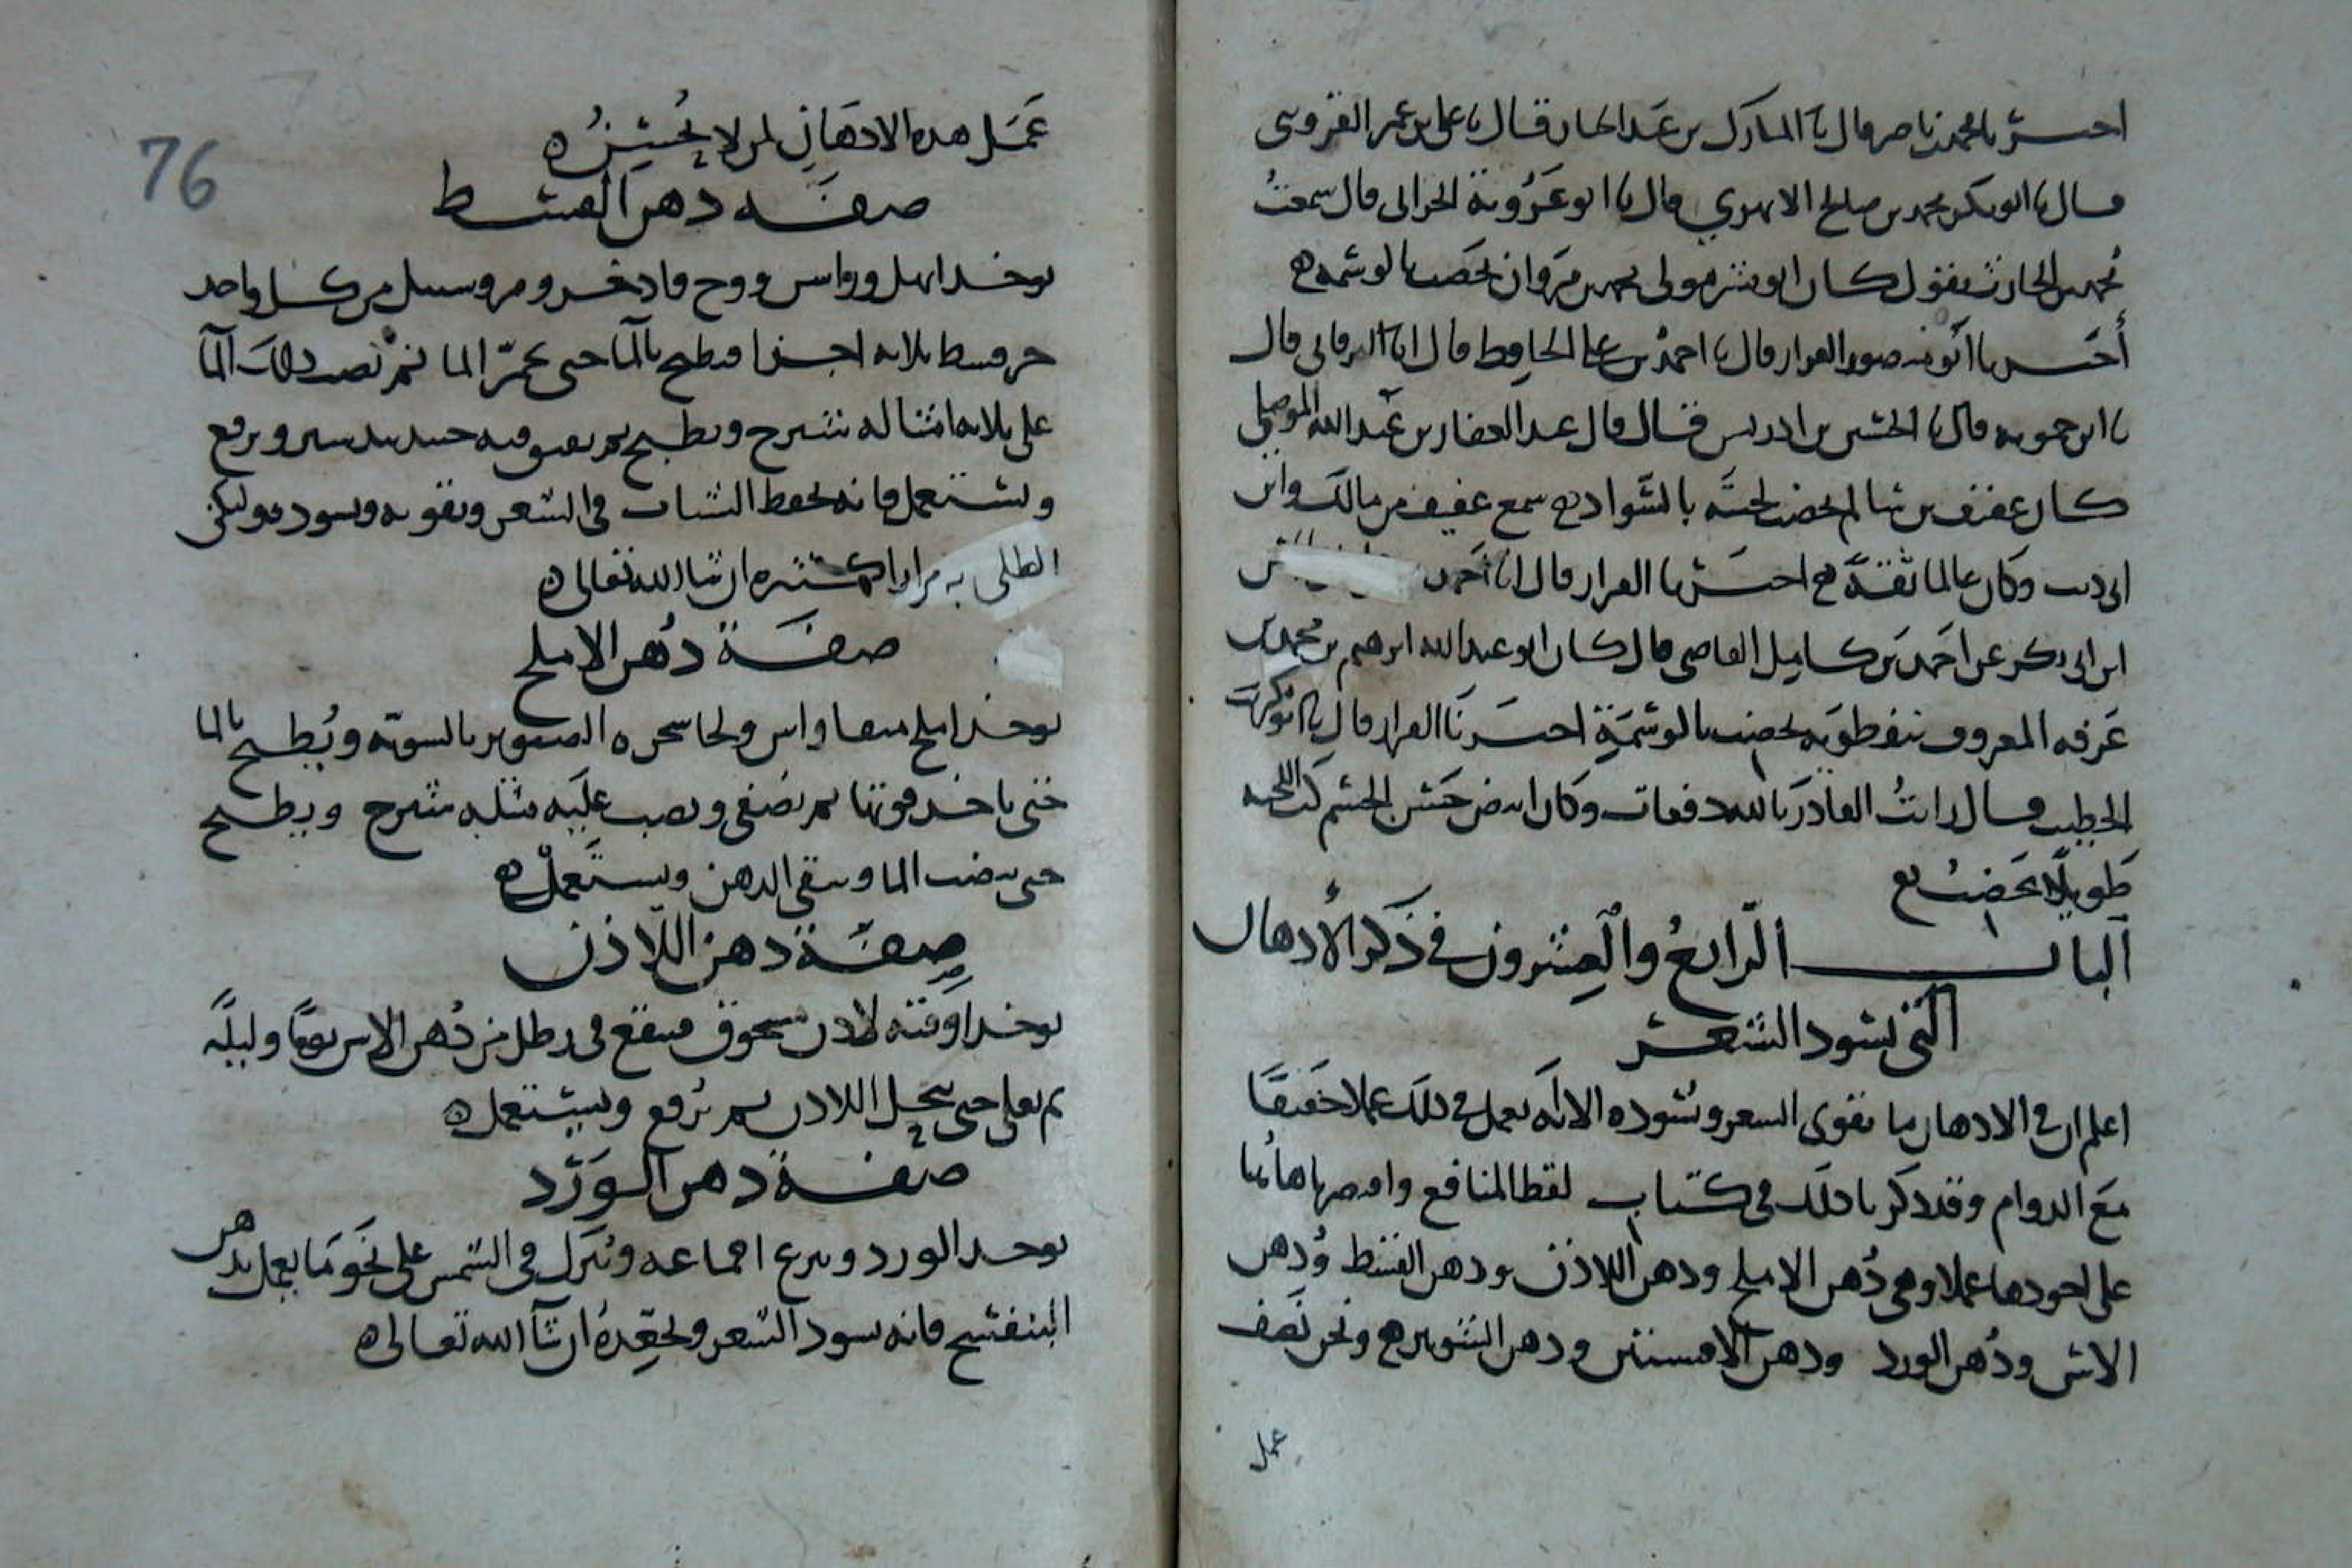 اخبرنا محمد بن ناصر قال انا المبارك بن عبد الجبار قال انا علي بن عمر القزويني
قال انا ابو بكر محمد بن صالح الابهري قال نا ابو عروبة الحراني قال سمعت
محمد بن الحارث يقول كان ابو بشر مولى محمد بن مروان يخضب بالوشمة ه
أخبرنا أبو منصور القزاز قال انا احمد بن علي الحافظ قال انا البرقاني قال
انا ابن حمويه قال نا الحسين بن ادريس قال قال عبد الغفار بن عبد الله الموصلي
كان عفيف بن سالم يخضب لحيته بالسواد ه سمع عفيف من مالك وابن
ابي ذيب وكان عالما ثقة ه اخبرنا القزاز قال انا أحمد
ابن ابي بكر عن احمد بن كامل القاضي قال كان ابو عبد الله ابرهيم بن محمد بن
عرفه المعروف بنفطويه يخضب بالوشمة اخبرنا القزاز قال نا ابو بكر بن
الخطيب قال رايت القادر بالله دفعات وكان ابيض حسن الجسم كث اللحيه
طويلها يخضب ه
الباب الرابع والعشرون في ذكر الأدهان
التي تسود الشعر
اعلم ان في الادهان ما يقوي الشعر ويسوده الا انه يعمل في ذلك عملا خفيفا
مع الدوام وقد ذكرنا ذلك في كتاب لقط المنافع واقتصرنا هاهنا
على اجودها عملا وهي دهن الاملج ودهن اللاذن ودهن القسط ودهن
الاس ودهن الورد ودهن الافسنتين ودهن الشونيز ه ونحن نصف
عمل
76
عمل هذه الادهان لمن لا يحسن ه
صفة دهن القسط
يوخذ ابهل وراس ووج وقاذخر ومر وسنبل من كل واحد
جز قسط ثلاثه اجزا فيطبخ بالما حتى يحمر الما ثم يصب ذلك الما
على ثلاثه امثاله شيرج ويطبخ ثم يفتق فيه جندبيدستر ويرفع
ويستعمل فانه يحفظ الشباب في الشعر ويقويه ويسوده وليكن
الطلي به مرارا كثيره ان شا الله تعالى ه
صفة دهن الاملج
يوخذ املج منقا واس ولحا شجره الصنوبر بالسويه ويطبخ بالما
حتى ياخذ قوتها ثم يصفى ويصب عليه مثله شيرج ويطبخ
حتى ينضب الما ويبقى الدهن ويستعمل ه
صفة دهن اللاذن
يوخذ اوقيه لاذن مسحوق فينقع في رطل من دهن الاس يوما وليلة
ثم يغلى حتى ينحل اللاذن ثم يرفع ويستعمل ه
صفة دهن الورد
يوخذ الورد وينزع اقماعه ويترك في الشمس على نحو ما يعمل بدهن
البنفسج فانه يسود الشعر ويجعده ان شآ الله تعالى ه